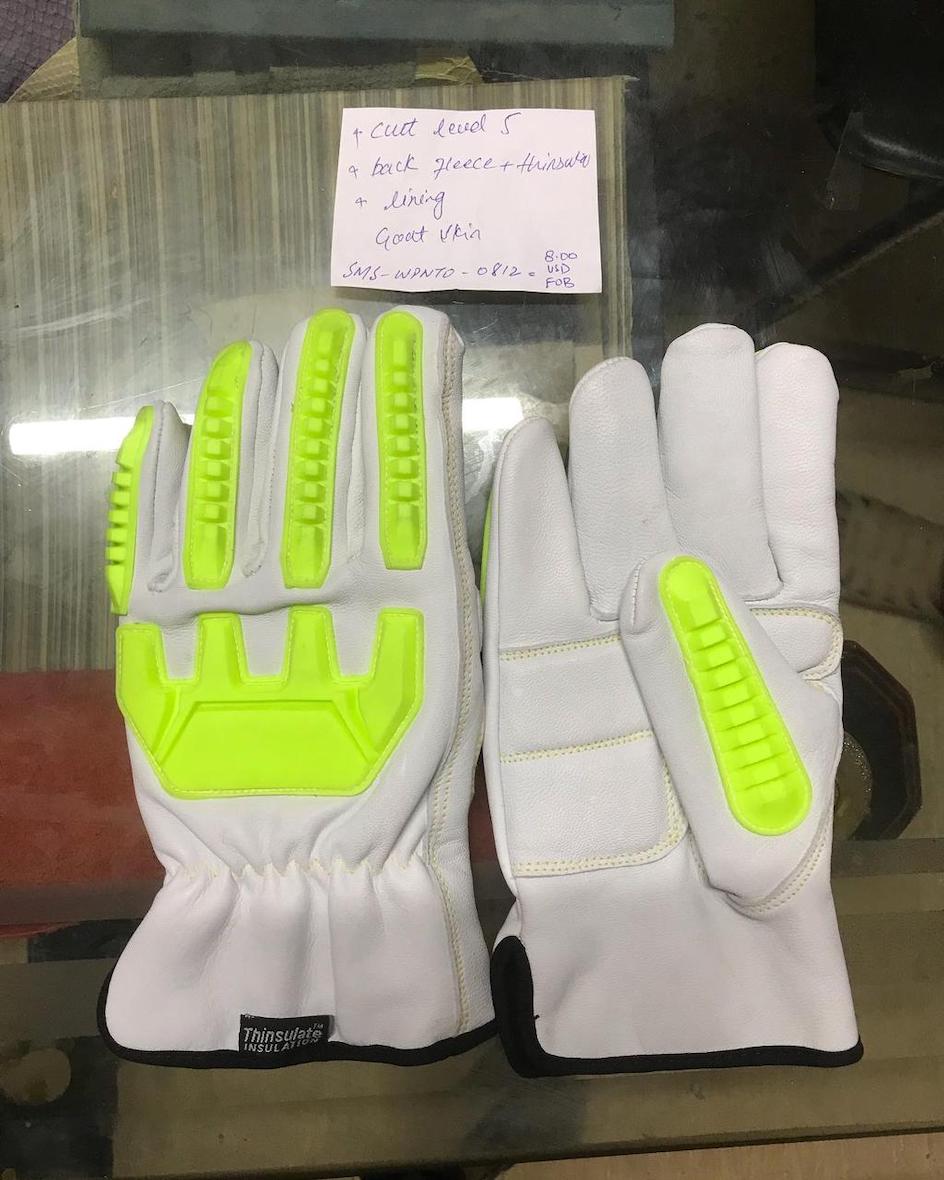 * Cutt level 5
* back fleece + thinsulate
* lining
Goat skin
SMS-WPNTO-0812.
8.00
USD
FOB
Thinsulate™
INSULATION